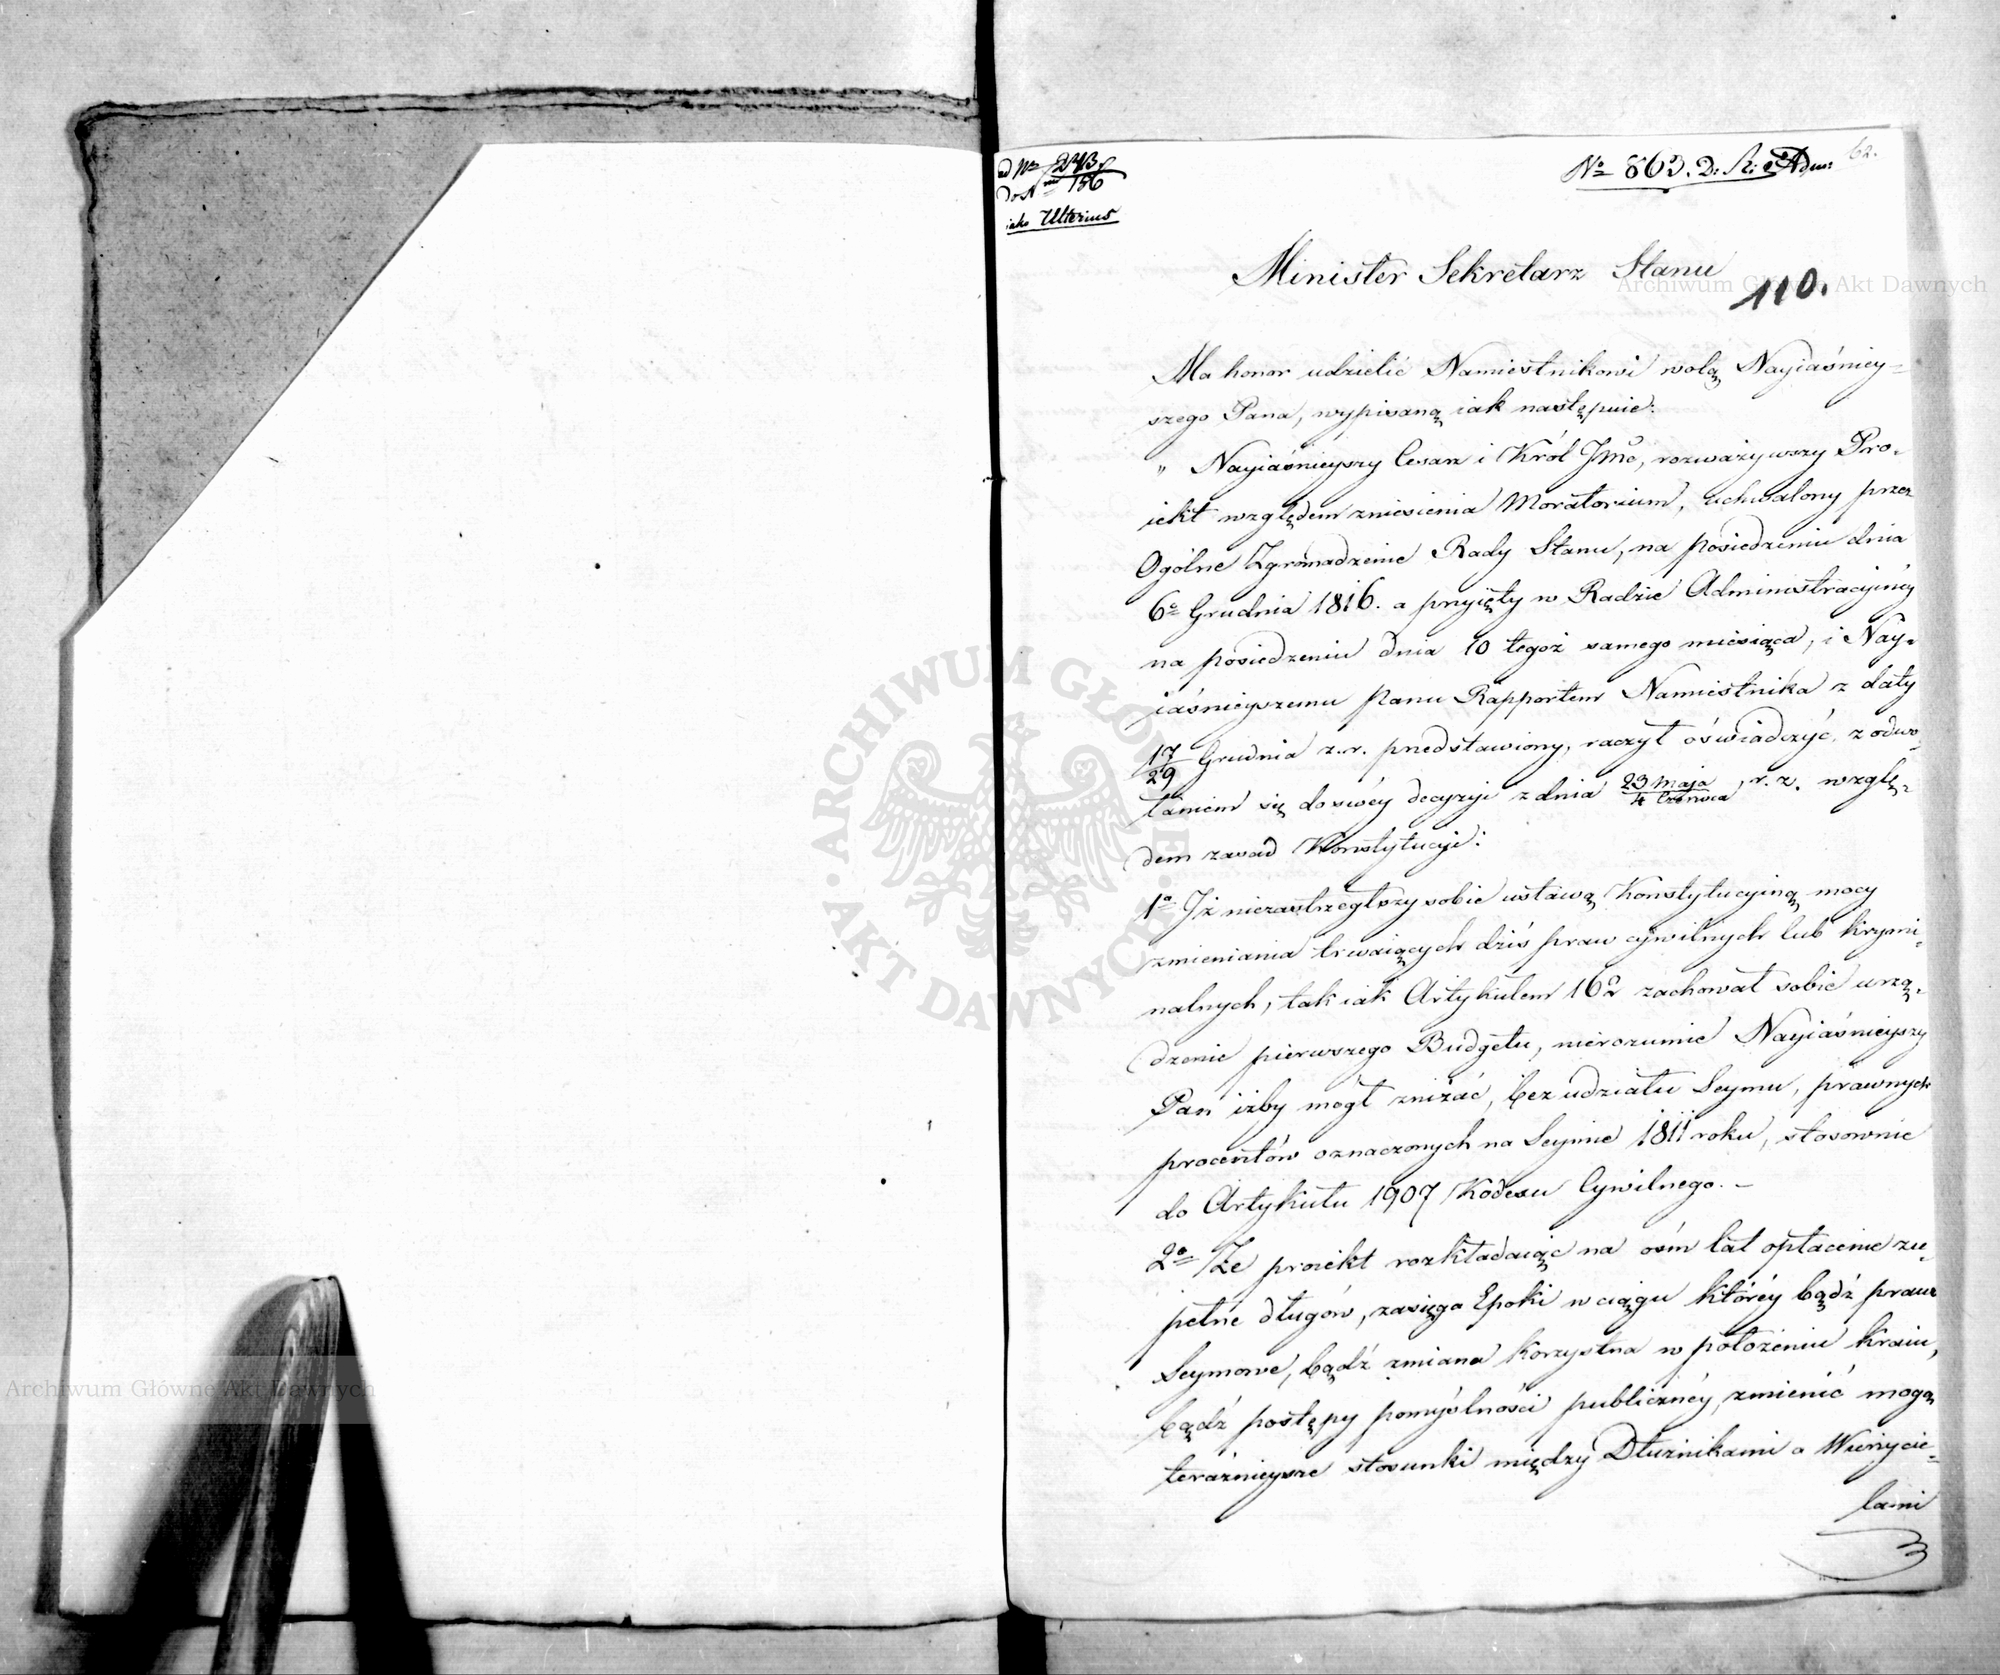 ad No 243
do No 156
iako Ulterius
No 863. D: R: Adm:
62.
Minister Sekretarz Stanu
110.
Ma honor udzielić Namiestnikowi wolą Nayiaśniey=
szego Pana, wypisaną iak następuie:
„ Nayiaśnieyszy Cesarz i Król Jmć, rozważywszy Pro-
iekt względem zniesienia Moratorium, uchwalony przez
Ogólne Zgromadzenie Rady Stanu, na posiedzeniu dnia
6o Grudnia 1816. a przyięty w Radzie Administracyinéy
na posiedzeniu dnia 10 tegoż samego miesiąca, i Nay-
iaśnieyszemu Panu Rapportem Namiestnika z daty
17/29 Grudnia z.r. przedstawiony, raczył oświadczyć, z odwo-
łaniem się do swéy decyzyi z dnia 23 Maja/4 Czerwca r. z. wzglę-
dem zasad Konstytucyi:
1o Iż niezastrzegłszy sobie ustawą Konstytucyiną mocy
zmieniania trwaiących dziś praw cywilnych lub krymi=
nalnych, tak iak Artykułem 162 zachował sobie urzą=
dzenie pierwszego Budgetu, nierozumie Nayiaśnieyszy
Pan iżby mógł zniżać, bez udziału Seymu, prawnych
procentów oznaczonych na Seymie 1811 roku, stosownie
do Artykułu 1907 Kodexu Cywilnego. –
2o Że proiekt rozkładaiąc na ośm lat opłacenie zu=
pełne długów, zasięga Epoki w ciągu któréy bądź prawa
Seymowe, bądź zmiana korzystna w położeniu kraiu,
bądź postępy pomyślności publicznéy, zmienić mogą
teraźnieysze stosunki między Dłużnikami a Wierzycie=
lami
ARCHIWUM GŁÓWNE
AKT DAWNYCH
Archiwum Główne Akt Dawnych
Archiwum Główne Akt Dawnych